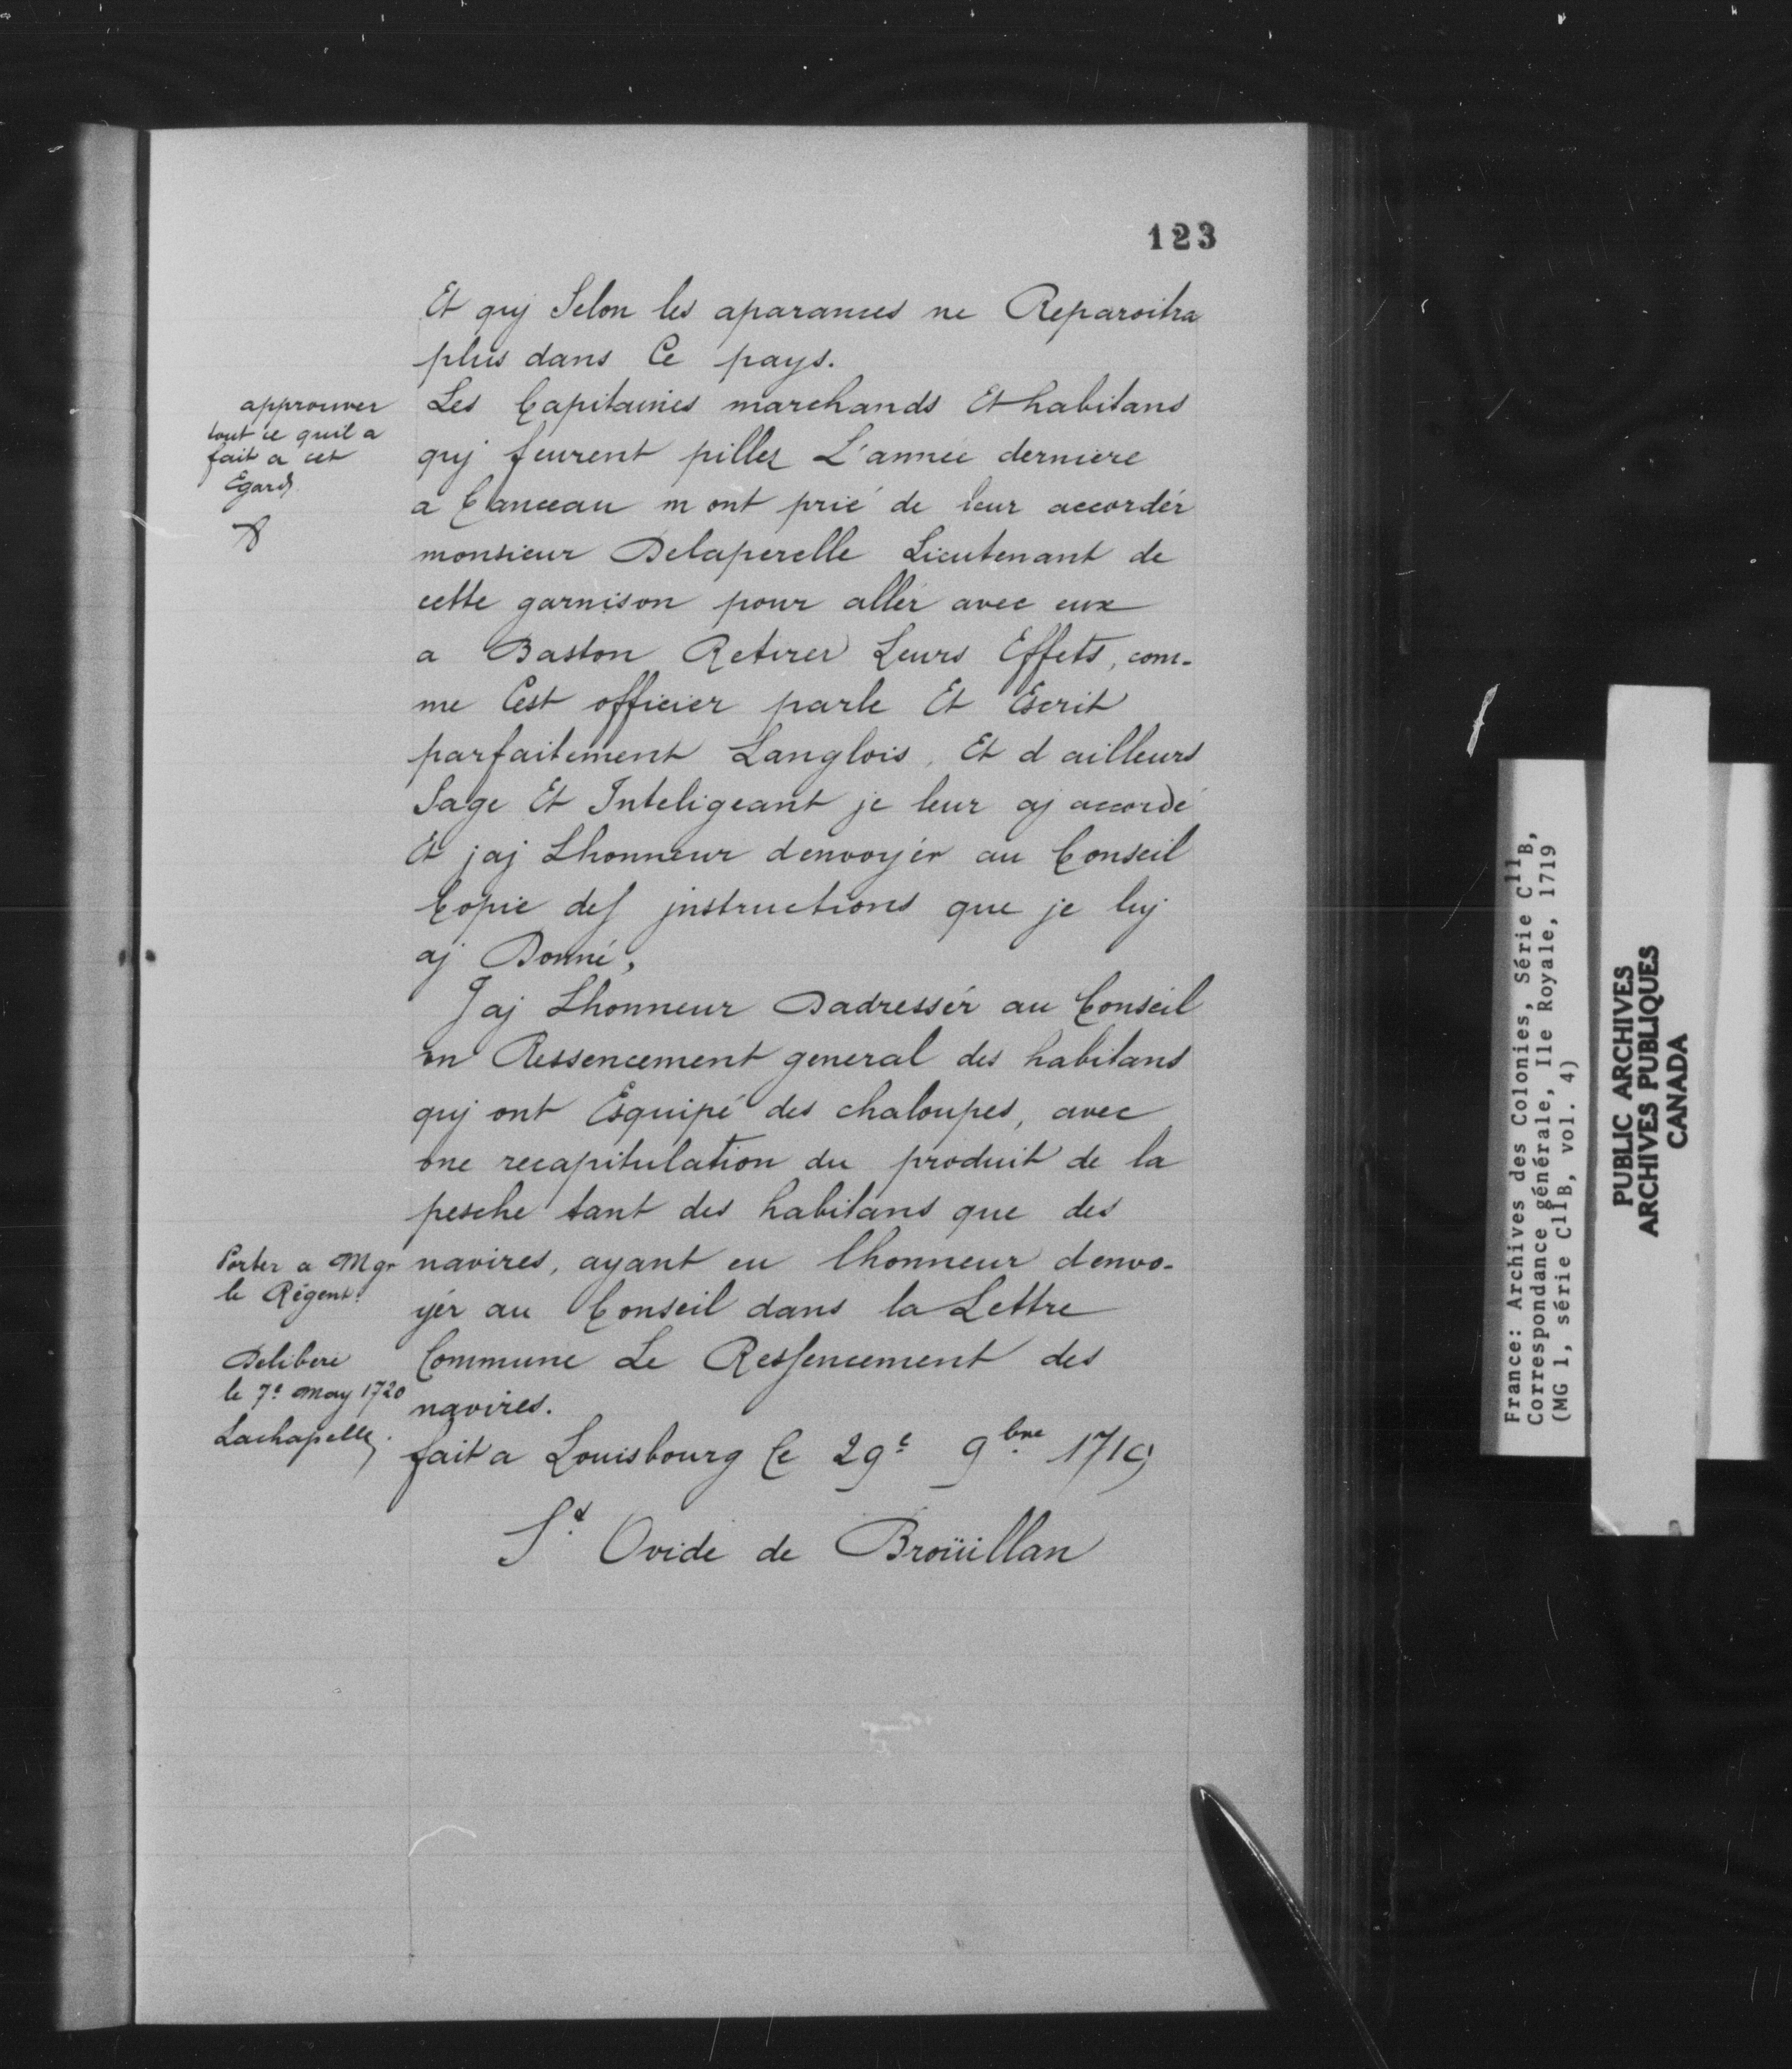 123
Et quj Selon les aparances ne Reparoitra
plus dans Ce pays.
approuver
tout ce quil a
fait a cet
Egard
Les Capitaines marchands Et habitans
quj feurent pillez L'année derniere
a Canceau m ont prié de leur accordér
monsieur Delaperelle Lieutenant de
cette garnison pour allér avec eux
a Baston Retirer Leurs Effets, com-
me Cest officier parle Et Escrit
parfaitement Langlois, Et d ailleurs
Sage Et Inteligeant je leur aj accordé
Et jaj Lhonneur denvoyér au Conseil
Copie des jnstructions que je luj
aj Donné,
Jaj Lhonneur Dadressér au Conseil
un Ressencement general des habitans
quj ont Esquipé des chaloupes, avec
une recapitulation du produit de la
pesche tant des habitans que des
navires, ayant eu lhonneur denvo-
yér au Conseil dans la Lettre
Commune Le Ressencement des
navires.
Porter a Mgr
le Régent.
Delibere
le 7e may 1720
Lachapelle
fait a Louisbourg Ce 29e 9bre 1719
St Ovide de Broüillan
France: Archives des Colonies, Série C11B,
Correspondance générale, Ile Royale, 1719
(MG 1, série C11B, vol. 4)
PUBLIC ARCHIVES
ARCHIVES PUBLIQUES
CANADA